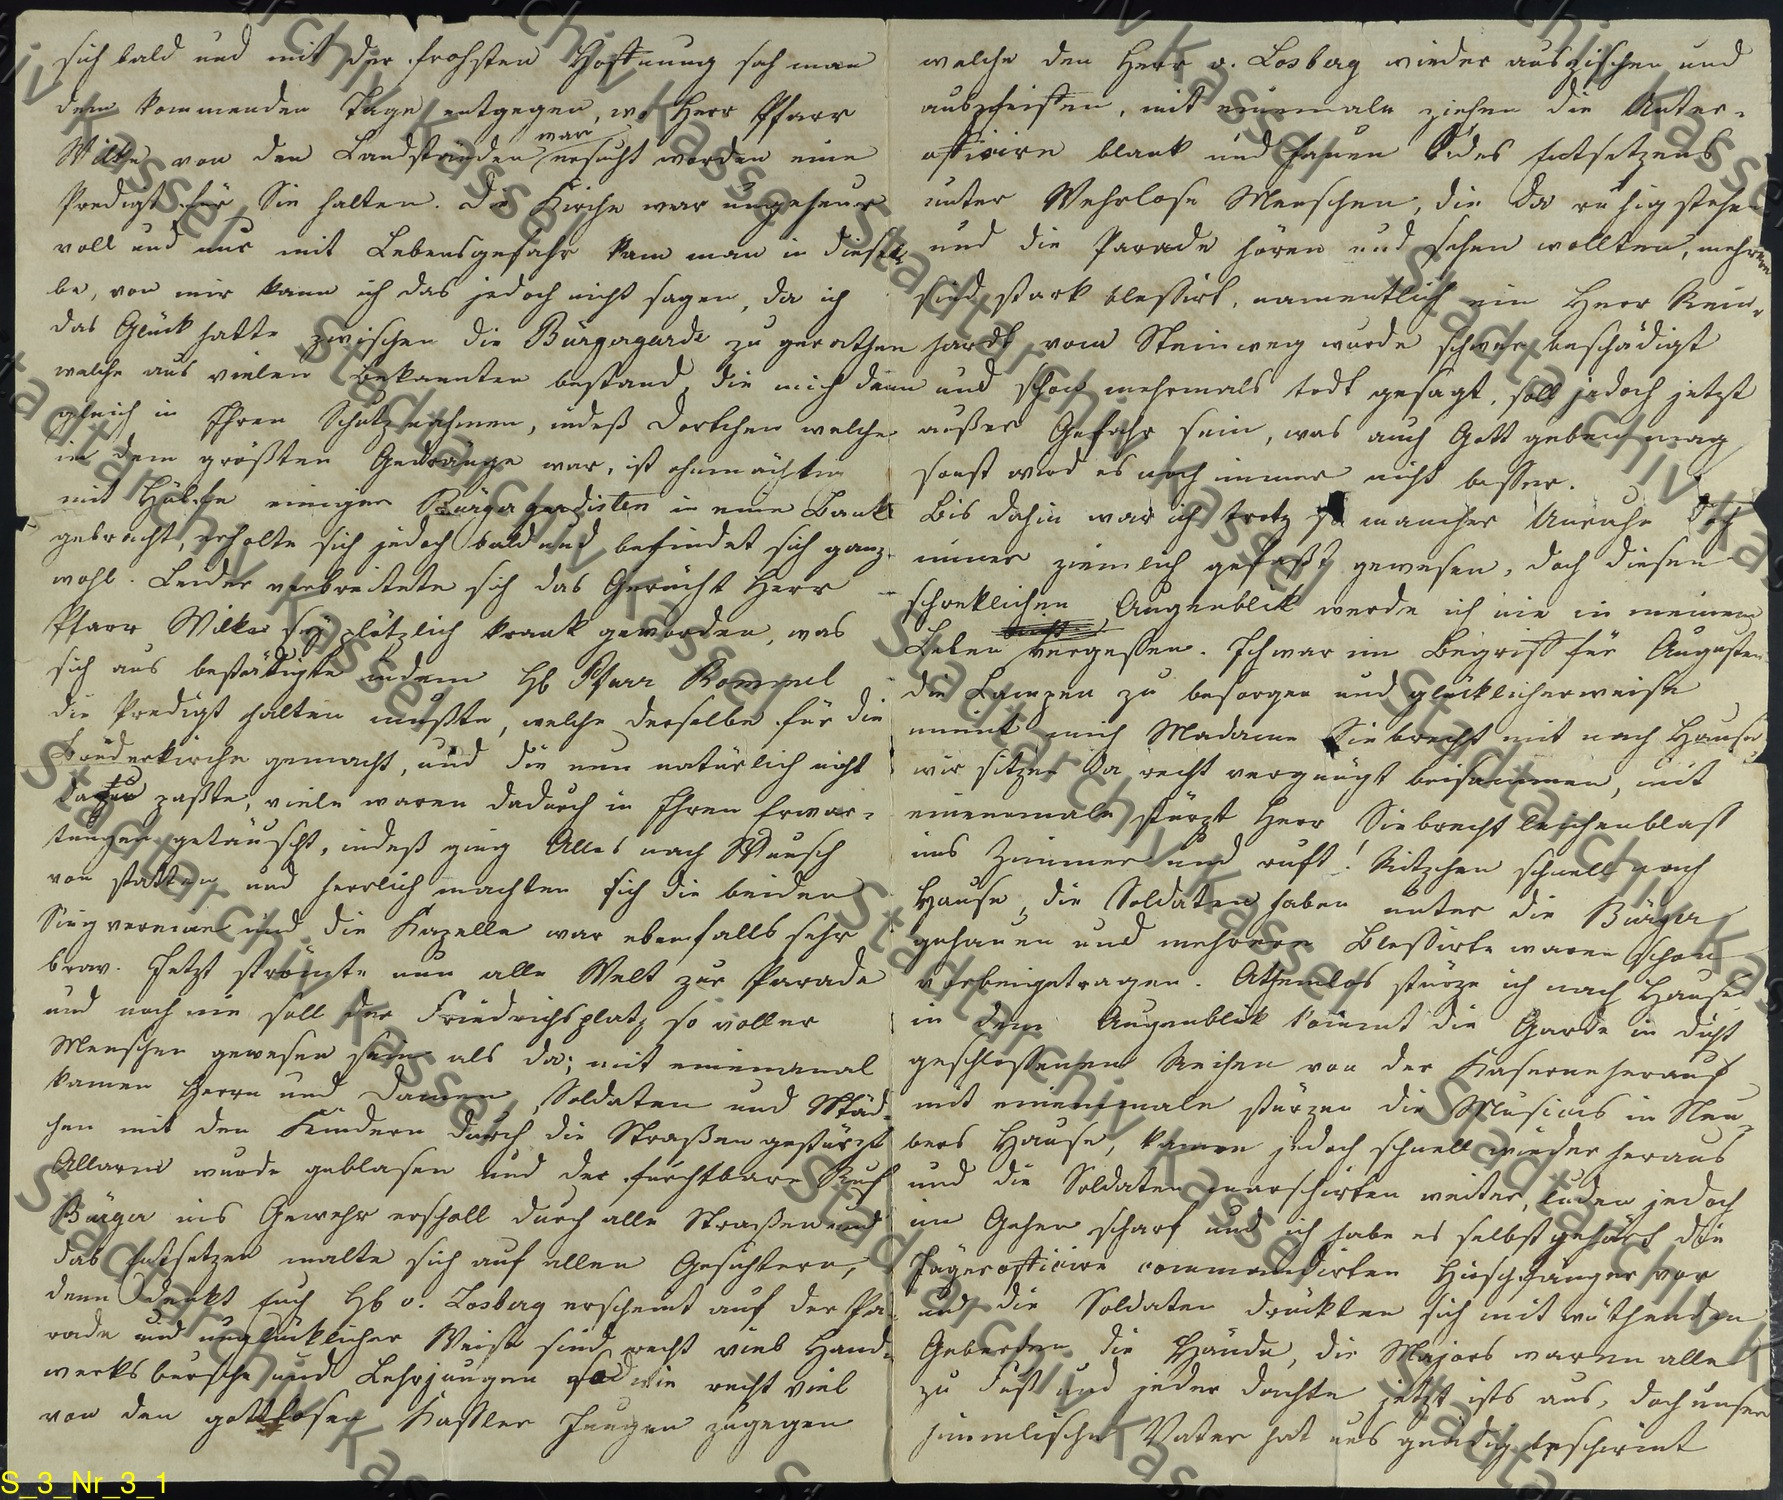 sich bald und mit der frohsten Hoffnung sah man
dem kommenden Tage entgegen, wo Herr Pfarr
Wilke von den Landständen war ersucht worden eine
Predigt für Sie halten. Die Kirche war ungeheuer
voll und nur mit Lebensgefahr kam man in diesel-
be, von mir kann ich das jedoch nicht sagen, da ich
das Glück hatte zwischen die Bürgergarde zu gerathen
welche aus vielen Bekannten bestand, die mich denn
gleich in Ihren Schutz nahmen, indeß Dortchen welche
in dem größten Gedränge war, ist ohnmächtig
mit Hülfe einiger Bürgergardisten in eine Bank
gebracht, erholte sich jedoch bald und befindet sich ganz
wohl. Leider verbreitete sich das Gerücht Herr
Pfarr Wilke sey plötzlich krank geworden, was
sich aus bestätigte indem Hb Pfarr Rommel
die Predigt halten mußte, welche derselbe für die
Brüderkirche gemacht, und die nun natürlich nicht
paßte, viele waren dadurch in Ihren Erwar-
tungen getäuscht, indeß ging Alles nach Wunsch
von statten und herrlich machten sich die beiden
Singvereine und die Kapelle war ebenfalls sehr
brav. Jetzt strömte nun alle Welt zur Parade
und noch nie soll der Friedrichsplatz so voller
Menschen gewesen sein als da; mit einemmal
kamen Herrn und Damen, Soldaten und Mäd-
chen mit den Kindern durch die Straßen gestürzt
Allarm wurde geblasen und der furchtbare Ruf
Bürger ins Gewehr erscholl durch alle Straßen und
das Entsetzen malte sich auf allen Gesichtern,
denn denkt Euch Hb v. Losberg erscheint auf der Pa-
rade und unglücklicher Weise sind recht viel Hand-
werksbursche und Lehrjungen so wie recht viel
von den gottlosen Kaßler Jungen zugegen
welche den Herr v. Losberg wieder auszischen und
auspfeiffen, mit einemale ziehen die Unter-
officiere blank und hauen des Entsetzens
unter Wehrlose Menschen, die da ruhig stehen
und die Parade hören und sehen wollten, mehrere
sind stark blessirt, namentlich ein Herr Rein-
hardt vom Steinweg wurde schwer beschädigt
und schon mehrmals todt gesagt, soll jedoch jetzt
außer Gefahr sein, was auch Gott geben mag
sonst wird es noch immer nicht besser.
Bis dahin war ich trotz so mancher Unruhe doch
immer ziemlich gefaßt gewesen, doch diesen
schreklichen Augenblick werde ich nie in meinem
Leben vergessen. Ich war im Begriff für Augusten
die Lampen zu besorgen und glücklicherweise
nimt mich Madame Siebrecht mit nach Hause,
wir sitzen da recht vergnügt beisammen, mit
einemmale stürzt Herr Siebrecht leichenblaß
ins Zimmer und ruft! Ritzchen schnell nach
Hause, die Soldaten haben unter die Bürger
gehauen und mehrere Blessirte waren schon
vorbeigetragen. Athemlos stürze ich nach Hause
in dem Augenblik kommt die Garde in dicht
geschlossenen Reihen von der Kaserne herauf
mit einemmale stürzen die Musicis in Neu-
bers Hause, kamen jedoch schnell wieder heraus
und die Soldaten marschirten weiter, luden jedoch
im Gehen scharf und ich habe es selbst gehört die
Jägerofficire commandirten Hirschfänger vor
und die Soldaten drückten sich mit wüthenden
Geberden die Hände, die Majors waren alle
zu Fuß und jeder dachte jetzt ists aus, doch unser
himmlischer Vater hat uns gnädig beschirmt
S_3_Nr_3_1
Stadtarchiv Kassel